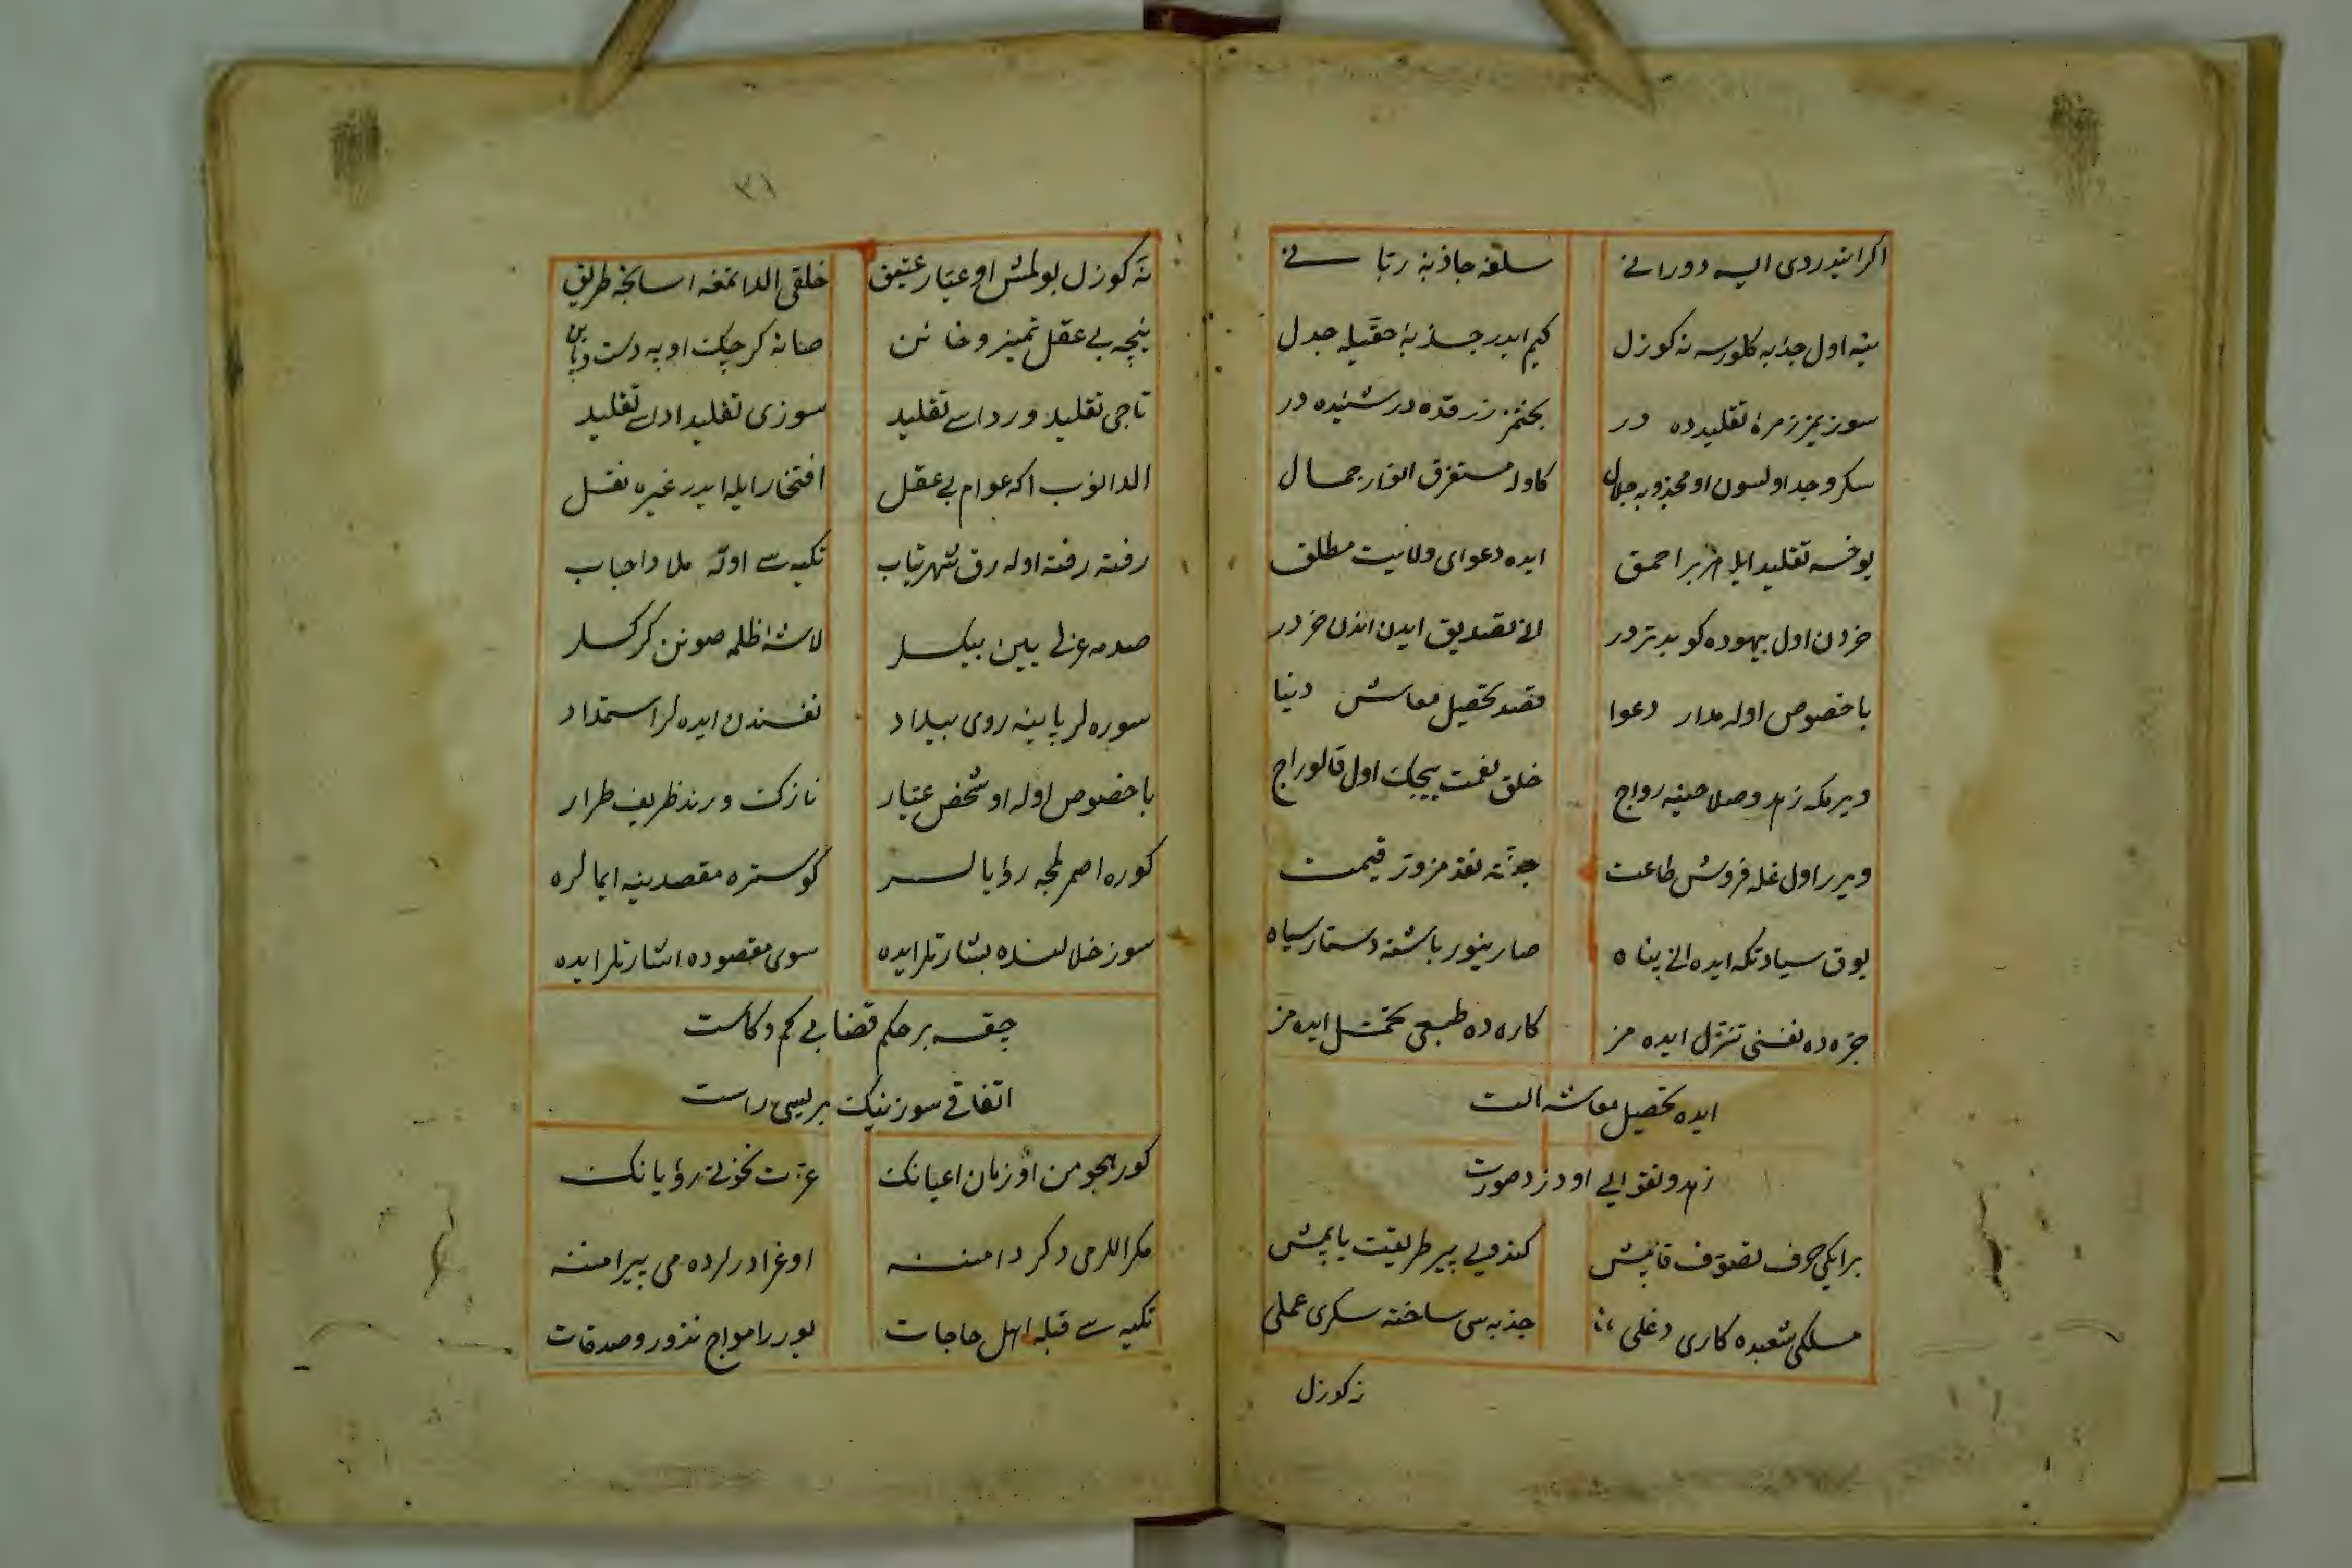 اکر ایتدردی ایسه دورانی سلفه جاذبهٔ ربانی
ینه اول جذبه کلورسه نه کوزل کیم ایدر جذبهٔ حقیله جدل
سوزیمز زمرهٔ تقلیده در بحثمز زرقده در شیده در
سکر و وجد اولسون او مجذوبه حلال کاوله مستغرق انوار جمال
یوخسه تقلید ایله هر بر احمق ایده دعوای ولایت مطلق
خردن اول بیهوده کو بدتر در انی تصدیق ایدن اندن خر در
باخصوص اوله مدار دعوا قصد تحصیل معاش دنیا
ویرمکه زهد و صلاحینه رواج خلق نعمت بیجک اول قالور اج
ویرر اول غله فروش طاعت جونه نقد مزوّر قیمت
یوق سیادتکه ایده انی پناه صارینور باشنه دستار سیاه
جرّه ده نفسنی تنزّل ایده مز کاره ده طبعی تحمّل ایده مز
ایده تحصیل معاشه الت
زهد و تقوایی او دزد صورت
بر ایکی حرف تصوّف قاپمش کندویی پیر طریقت یاپمش
مسلکی شعبده کاری دغلی جذبه سی ساخته سکری عملی
نه کوزل
۳۱
نه کوزل بولمش او عیّار عتیق خلقی الداتمغه اسانجه طریق
نیچه بی عقل تمیز و خائن صانه کرچک اوبه دست و پاین
تاجی تقلید و ردای تقلید سوزی تقلید ادای تقلید
الدانوب اکه عوام بی عقل افتخار ایله ایدر غیره نقل
رفته رفته اوله رق شهرتیاب تکیه سی اوله ملا و احباب
صدمه عزلی یین بیکسلر لاشهٔ ظلمه صونن کرکسلر
سوره لر پاینه روی بیداد نفسندن ایده لر استمداد
باخصوص اوله او شخص عیّار نازک و رند ظریف طرار
کوره اصمرلمجه رؤیالر کوستره مقصدینه ایمالره
سوز خلالنده بشارتلر ایده سوی مقصوده اشارتلر ایده
چقسه بر حکم قضا بی کم و کاست
اتفاقی سوزینک بریسی راست
کور هجومن او زمان اعیانک عزت نخوتی رؤیانک
مکر اللرمی دکر دامننه اوغرادرلرده می پیرامننه
تکیه سی قبلهٔ اهل حاجات یورر امواج نذور و صدقات